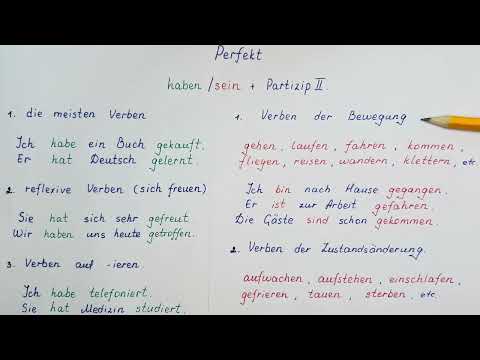 Perfekt
haben / sein + Partizip II.
1. die meisten Verben
Ich habe ein Buch gekauft.
Er hat Deutsch gelernt.
2. reflexive Verben (sich freuen)
Sie hat sich sehr gefreut
Wir haben uns heute getroffen.
3. Verben auf -ieren.
Ich habe telefoniert.
Sie hat Medizin studiert.
1. Verben der Bewegung
gehen, laufen, fahren, kommen,
fliegen, reisen, wandern, klettern, etc.
Ich bin nach Hause gegangen.
Er ist zur Arbeit gefahren.
Die Gäste sind schon gekommen.
2. Verben der Zustandsänderung.
aufwachen, aufstehen, einschlafen,
gefrieren, tauen, sterben, etc.